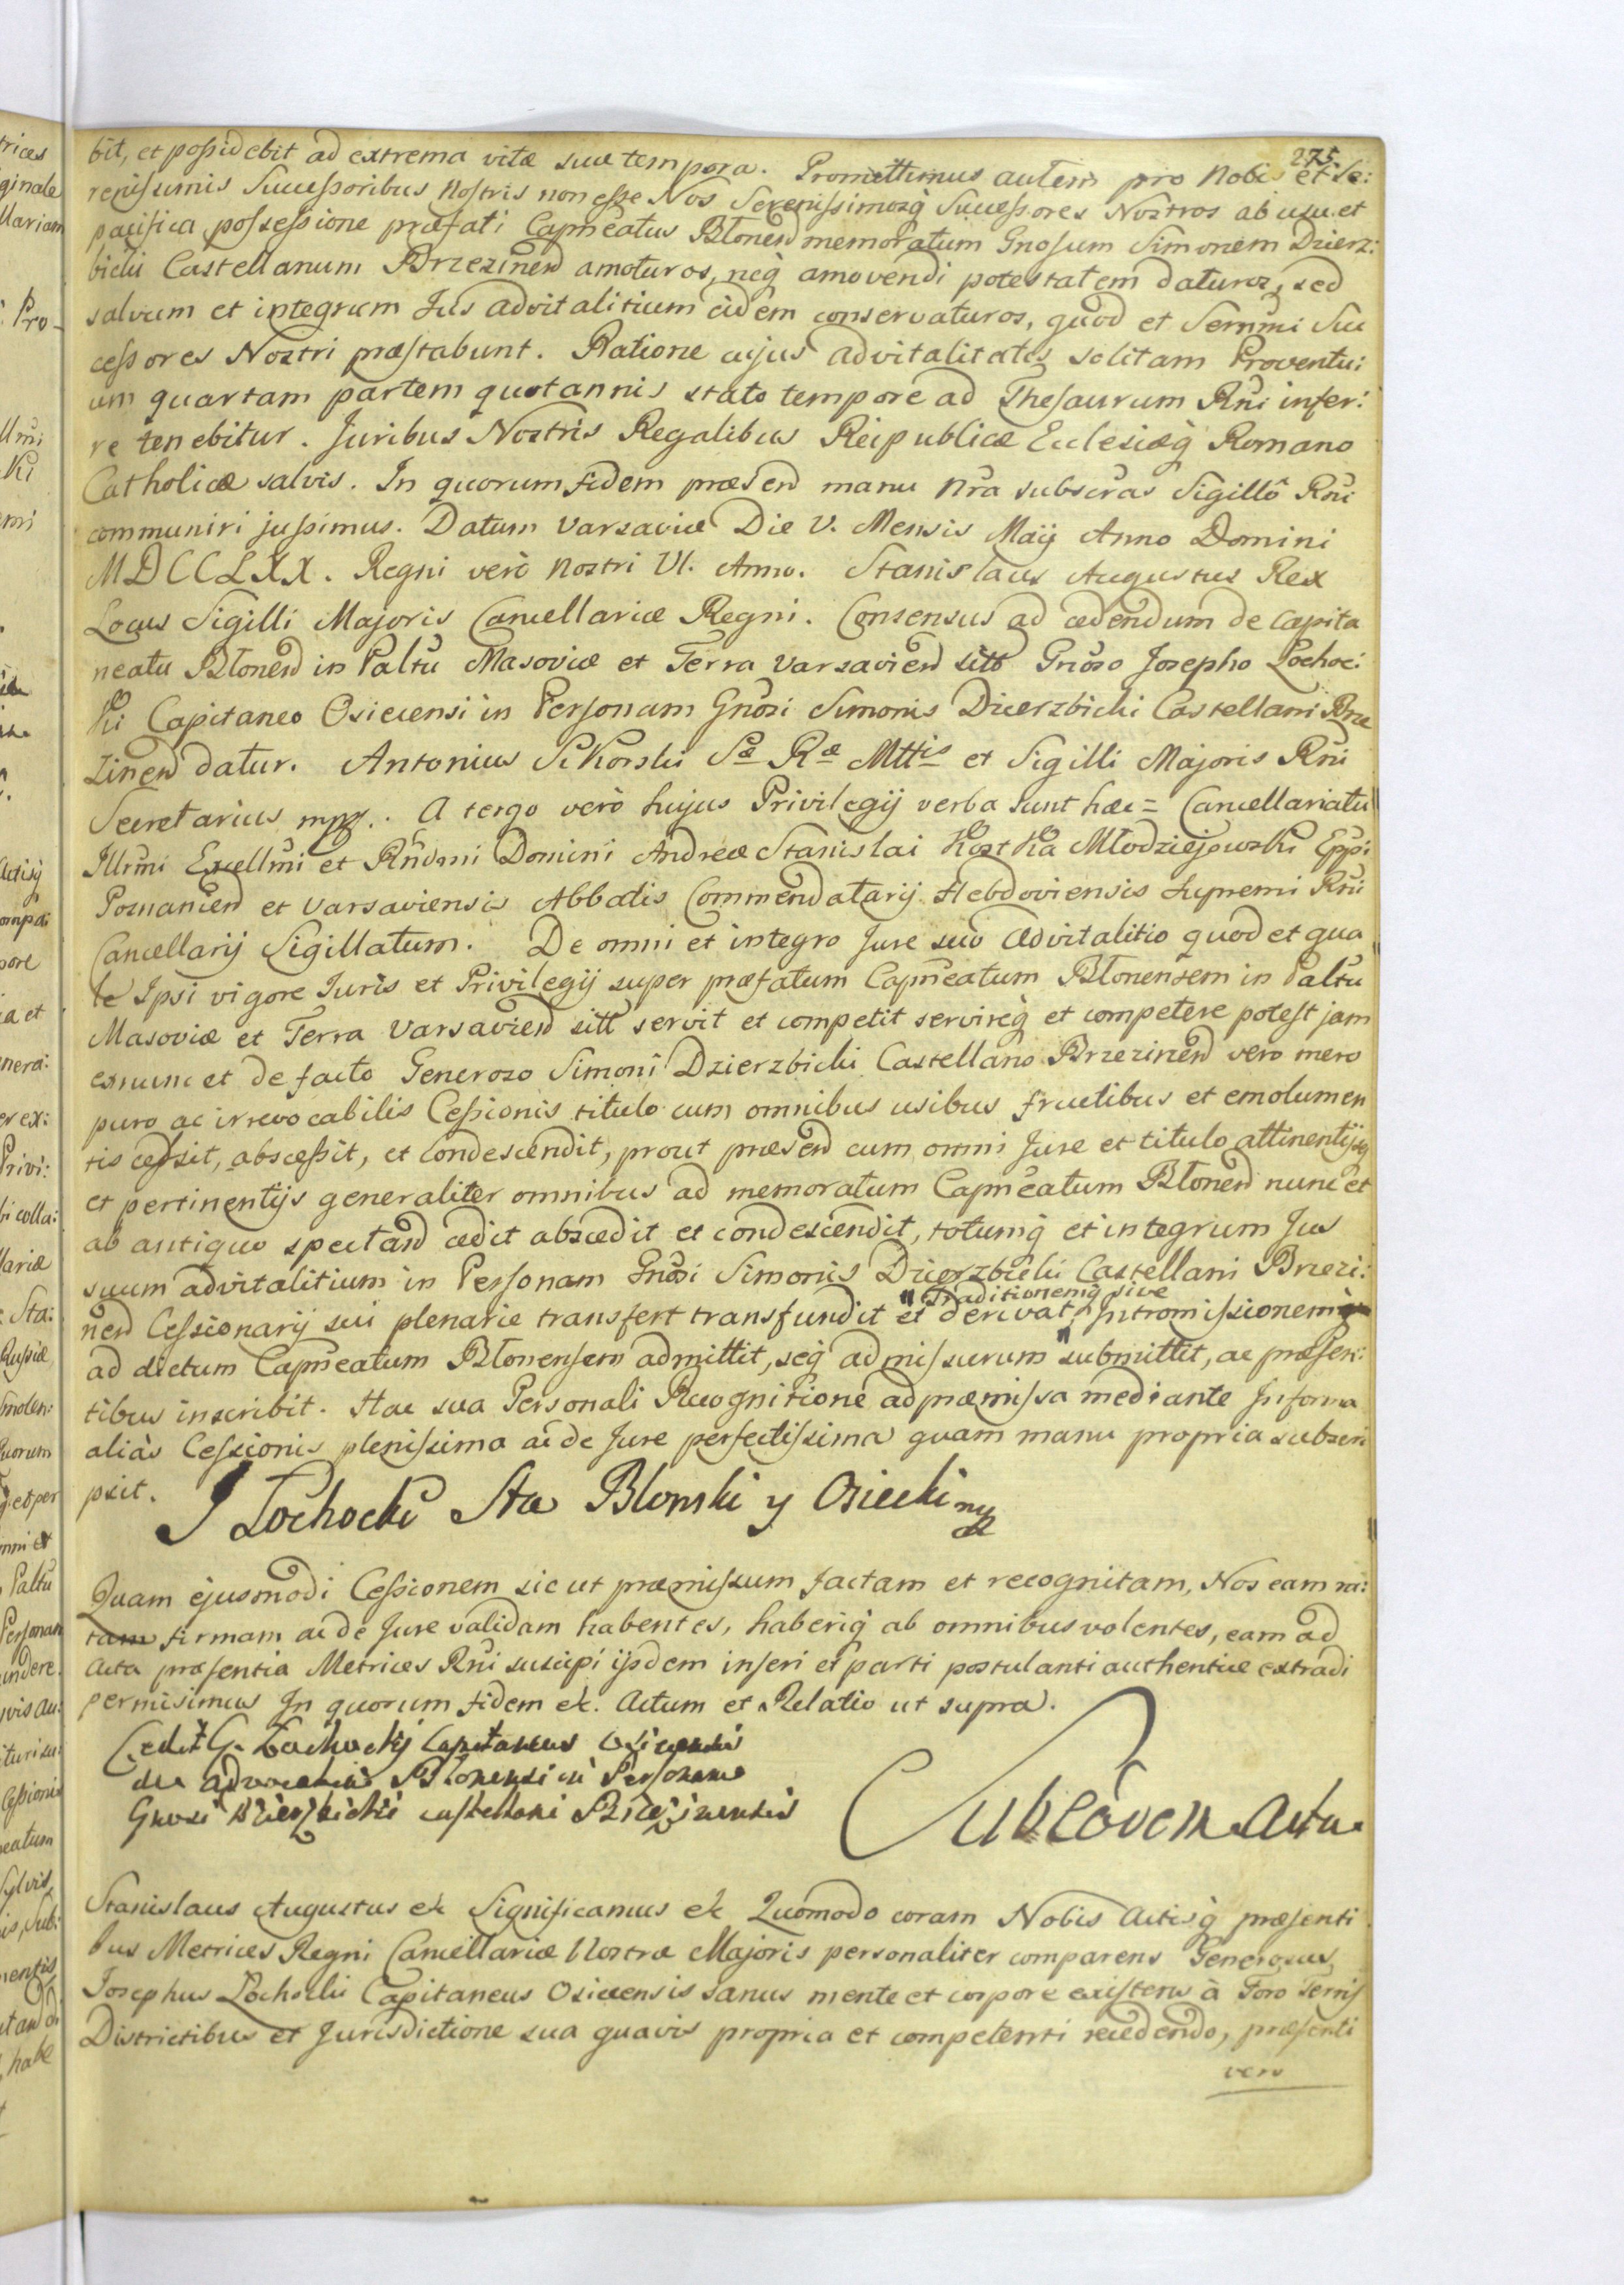 275.
bit, et possidebit ad extrema vitæ suæ tempora. Promittimus autem pro Nobis et Se:
renissimis Successoribus Nostris non esse Nos Serenissimosq̀ Successores Nostros ab usu et
pacifica possessione præfati Capñeatus Błonen̄ memoratum Gnosum Simonem Dzierz:
bicki Castellanum Brzezinen̄ amoturos, neq̀ amovendi potestatem daturos, sed
salvum et integrum Jus advitalitium eidem conservaturos, quod et Sernm̄i Suc
cessores Nostri præstabunt. Ratione cujus advitalitatis solitam Proventu:
um quartam partem quotannis stato tempore ad Thesaurum Rñi infer:
re tenebitur. Juribus Nostris Regalibus Reipublicæ Ecclesiæq̀ Romano
Catholicæ salvis. In quorum fidem præsen̄ manu Nr̃a subscras Sigillô Rñi
communiri jussimus. Datum Varsaviæ Die V. Mensis Maij Anno Domini
MDCCLXX. Regni verò Nostri VI. Anno. Stanislaus Augustus Rex
Locus Sigilli Majoris Cancellariæ Regni. Consensus ad cedendum de Capita
neatu Błonen̄ in Paltu Masoviæ et Terra Varsavien̄ sitô Gnoso Josepho Łochoc:
ki Capitaneo Osiecensi in Personam Gnosi Simonis Dzierzbicki Castellani Brze
zinen̄ datur. Antonius Sikorski Sæ Ræ Mttis et Sigilli Majoris Rñi
Secretarius mpp. A tergo verò hujus Privilegij verba sunt hæc = Cancellariatu
Illrm̃i Excellm̃i et Rñdm̃i Domini Andreæ Stanislai Kostka Młodziejowski Eppi
Posnanien̄ et Varsaviensis Abbatis Commendatarij Hebdoviensis Supremi Rñi
Cancellarij Sigillatum. De omni et integro Jure suo Advitalitio quod et qua
le Ipsi vigore Juris et Privilegij super præfatum Capñeatum Błonensem in Paltu
Masoviæ et Terra Varsavien̄ sitt servit et competit servireq̀ et competere potest jam
exnunc et de facto Generoso Simoni Dzierzbicki Castellano Brzezinen̄ vero mero
puro ac irrevocabilis Cessionis titulo cum omnibus usibus fructibus et emolumen
tis cessit, abscessit, et condescendit, prout præsen̄ cum omni Jure et titulo attinentijsq̀
et pertinentijs generaliter omnibus ad memoratum Capñeatum Błonen̄ nunc et
ab antiquo spectan̄ cedit abscedit et condescendit, totumq̀ et integrum Jus
suum advitalitium in Personam Gnosi Simonis Dzierzbicki Castellani Brzezi:
nen̄ Cessionarij sui plenarie transfert transfundit et derivat, " Traditionemq̀ sive Intromissionem
ad dictum Capñeatum Błonensem admittit, seq̀ admissurum submittit, ac præsen:
tibus inscribit. Hac sua Personali Recognitione ad præmissa mediante In forma
aliàs Cessionis plenissima ac de Jure perfectissima quam manu propria subscri
psit.
J Łochocki Sta Blonski y Osiecki mp
Quam ejusmodi Cessionem sic ut præmissum factam et recognitam, Nos eam ra:
tam firmam ac de Jure validam habentes, haberiq̀ ab omnibus volentes, eam ad
Acta præsentia Metrices Rñi suscipi ijsdem inseri et parti postulanti authentice extradi
permisimus In quorum fidem etc. Actum et Relatio ut supra.
Cedit G. Łochockij Capitaneus Osiecensis
de Advocatia Błonensi in Personam
Gnosi Dzierzbicki castellani Brzezinensis
Sub eodem Actu.
Stanislaus Augustus etc Significamus etc Quomodo coram Nobis Actisq̀ præsenti
bus Metrices Regni Cancellariæ Nostræ Majoris personaliter comparens Generosus
Josephus Łochocki Capitaneus Osiecensis sanus mente et corpore existens à Foro Terris
Districtibus et Jurisdictione sua quavis propria et competenti recedendo, præsenti
vero